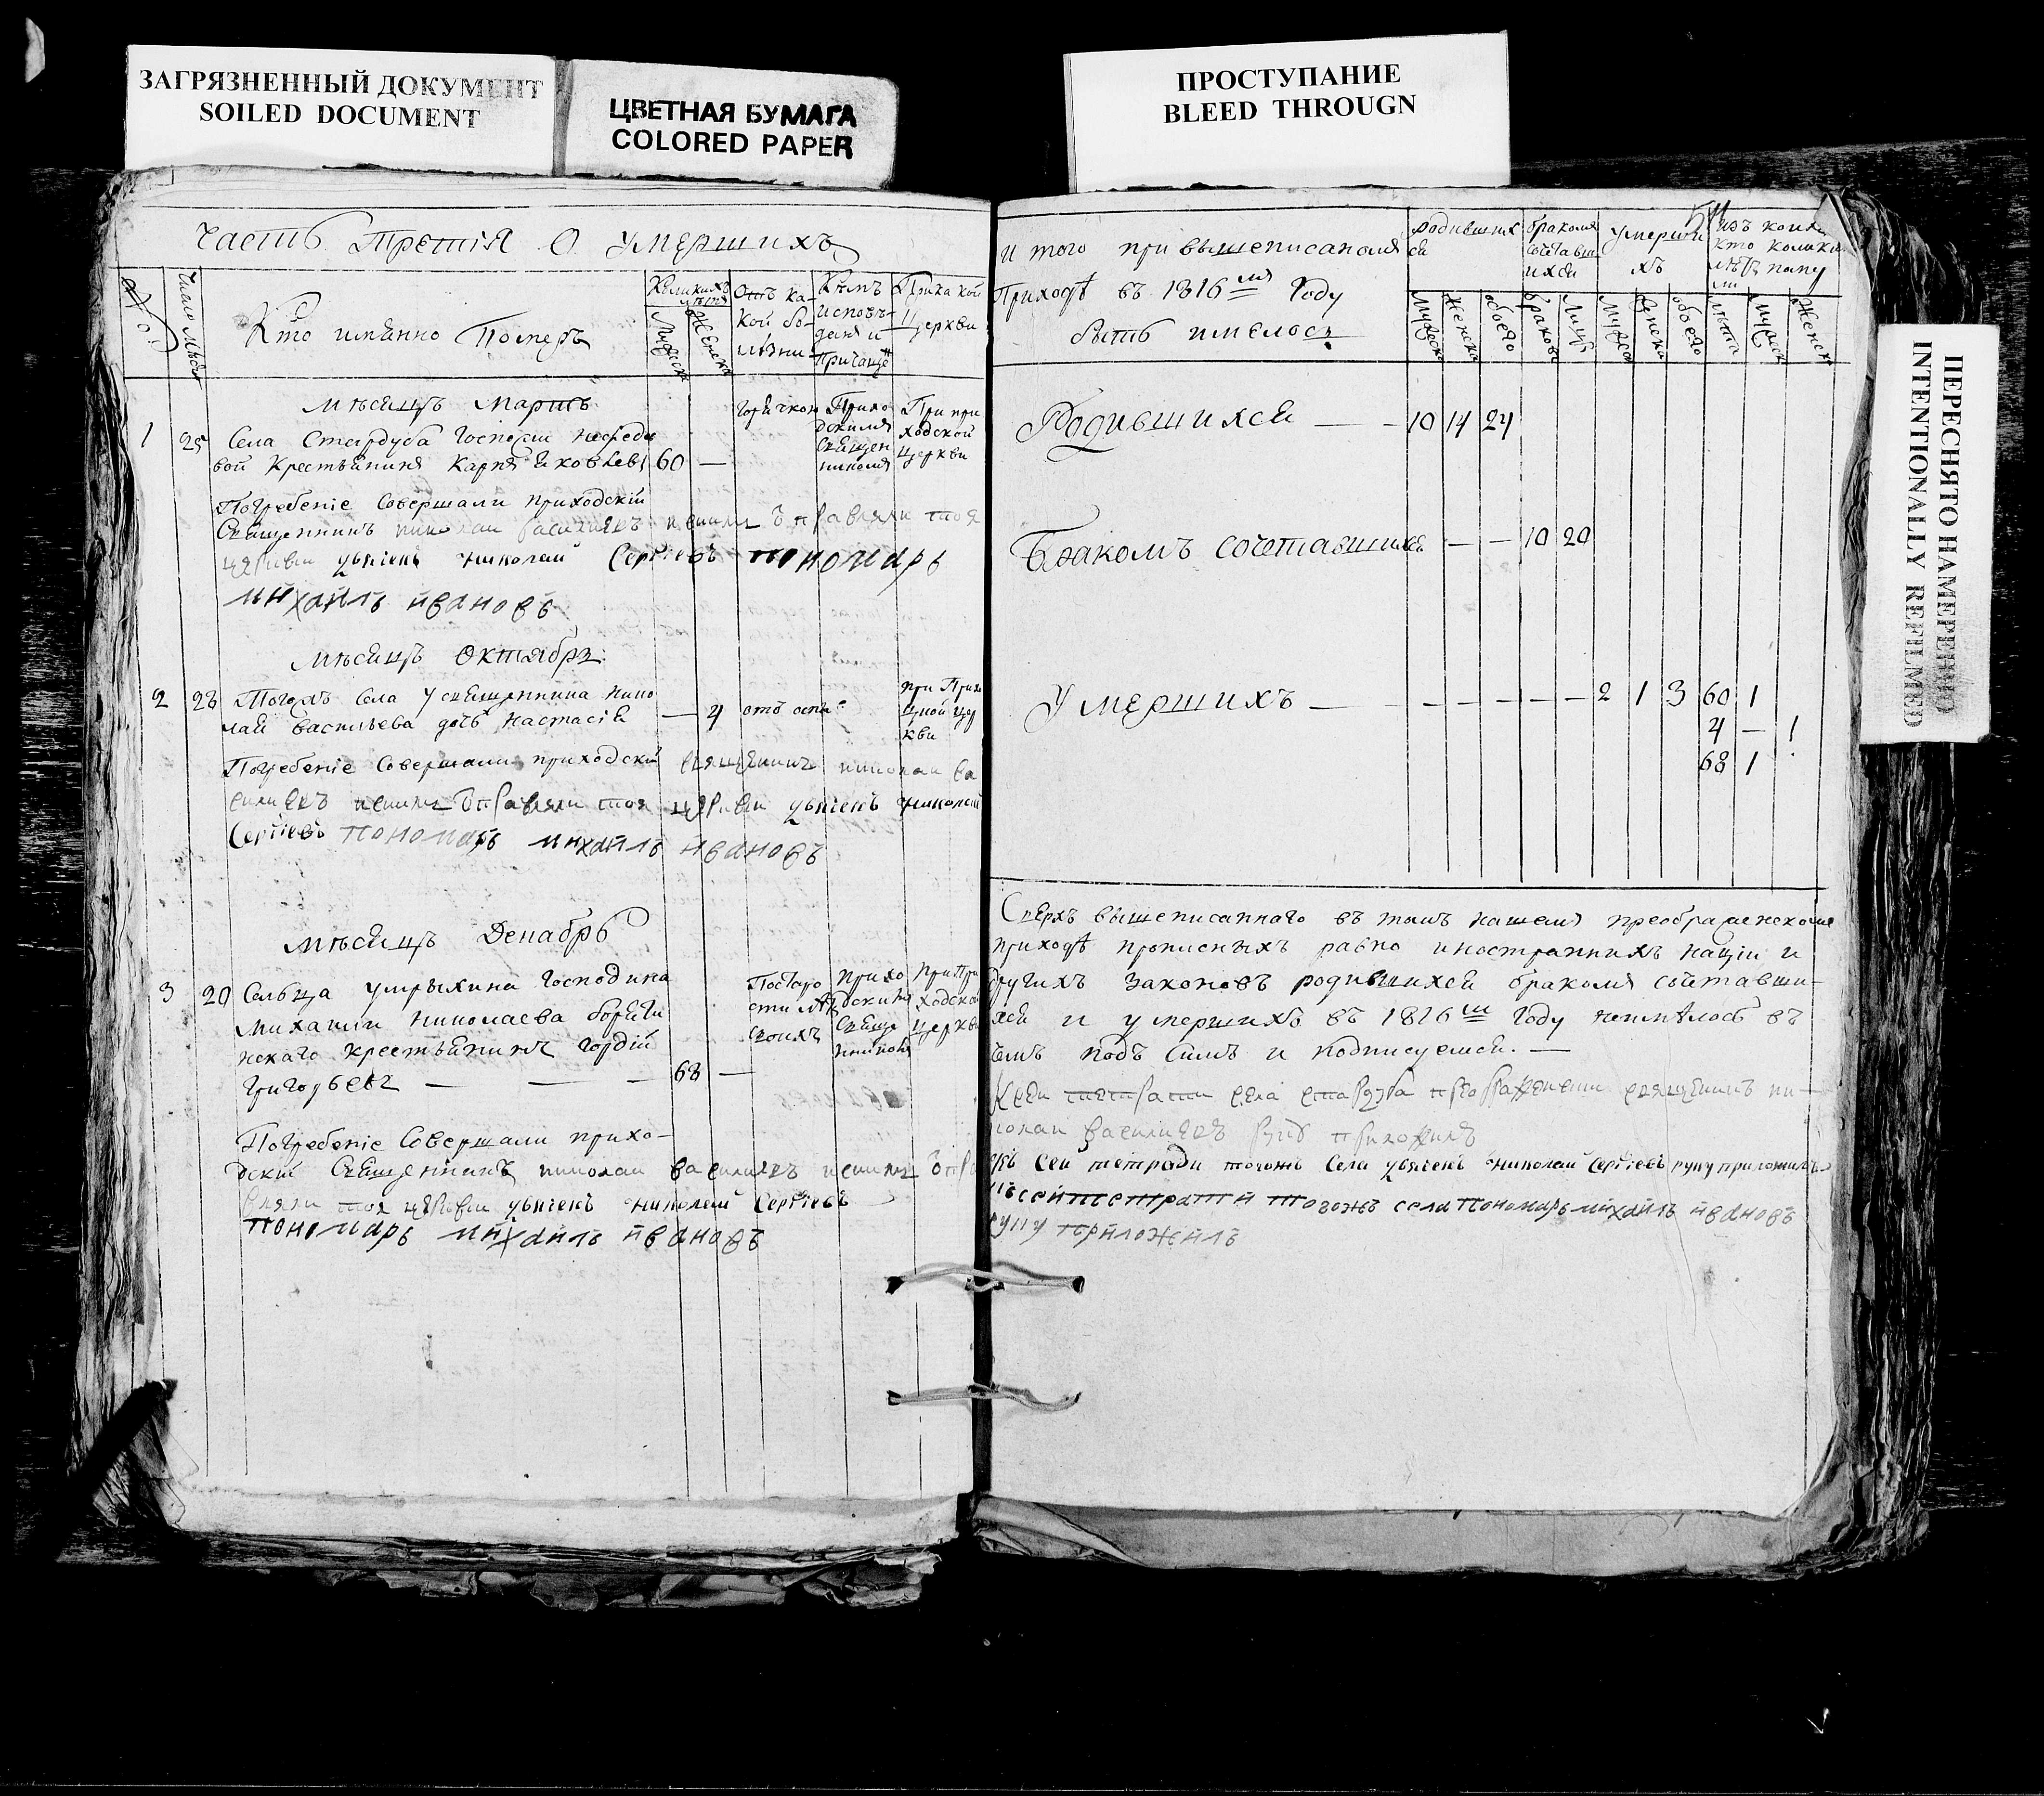 ЗАГРЯЗНЕННЫЙ ДОКУМЕНТ
SOILED DOCUMENT
ЦВЕТНАЯ БУМАГА
COLORED PAPER
ПРОСТУПАНИЕ
BLEED THROUGN
ПЕРЕСНЯТО НАМЕРЕННО
INTENTIONALLY REFILMED
Часть Третія О умершихъ
Число
Кто имянно Померъ
Коликихъ лѣтъ
Мужеска
Женска
Отъ ка-
кой бо-
лѣзни
Кѣмъ
исповѣ-
Причаще
При какой
Церкви
мѣсяцъ Мартъ
1 25 Села Стародуба Господи
вой крестьянинъ Яковлевъ 60 —
горячкою
Прихо
дскимъ
священ
никомъ
При при
ходской
церкви
Погребеніе Совершали приходскій
Священникъ николаи василиевъ
церкви николай Сергіевъ пономарь
михаилъ ивановъ
мѣсяцъ Октябрь
2 28 Тогожъ Села у священника нико
лая Васильева дочь настасія — 4 отъ оспы
при Прихо
дской цер
кви
Погребеніе Совершали приходскій священникъ николаи ва
силиевъ церкви николай
Сергіевъ пономарь михаилъ ивановъ
мѣсяцъ Декабрь
3 20 Сельца Господина
Михаила николаева
крестьянинъ гордій
григорьевъ — — — 68 —
Прихо
дскимъ
свяще
нникомъ
При При
ходской
церкви
Погребеніе Совершали прихо-
дскій Священникъ николаи василиевъ
церкви николай Сергіевъ
пономарь михаилъ ивановъ
И того при вышеписаномъ
Приходѣ въ 1816мъ Году
быть имелось
родивших
ся
бракомъ
сочетавш
ихся
умерши
хъ
изъ коихъ
Мужеска
Женска
обоего
браковъ
Лицъ
Мужеска
Женска
обоего
лѣта
Мужеск
Женск
Родившихся — — 10 14 24
Бракомъ сочетавшихся — — 10 20
Умершихъ — — — — — — 2 1 3 60 1
4 — 1
68 1
Сверхъ вышеписаннаго въ томъ нашемъ преображенскомъ
приходѣ прописныхъ равно иностранныхъ націи и
другихъ законовъ родившихся бракомъ сочетавши-
хся и умершихъ въ 1816м Году неимѣлось въ
чемъ подъ симъ и подписуемся. —
села священникъ ни-
колаи василиевъ приложилъ
Къ сей тетради тогожъ Села николай Сергіевъ руку приложилъ
тогожъ села пономарь михаилъ ивановъ
руку приложилъ